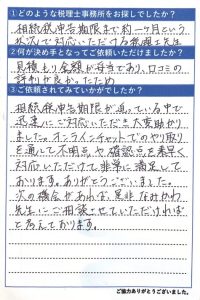 ①どのような税理士事務所をお探しでしたか？
相続税申告期限まで約一ヶ月という
状況で対応いただける税理士先生
②何が決め手となってご依頼いただけましたか？
見積もり金額が妥当であり、口コミの
評判が良かったため
③ご依頼されてみていかがでしたか？
相続税申告期限が迫っている中で
迅速にご対応いただき大変助かり
ました。オンラインチャットでのやり取り
を通して不明点や確認点を素早く
対応いただけて非常に満足して
おります。ありがとうございました。
次の機会があれば、是非なかがわ
先生にご相談させていただければ
と考えております。
ご協力ありがとうございました。